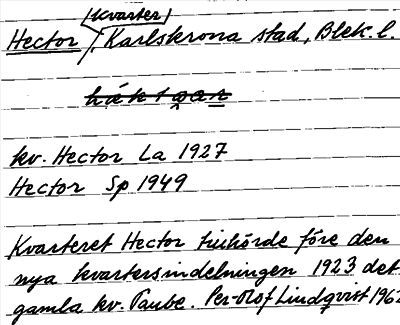 (kvarter)
Hector, Karlskrona stad, Blek. l.
kv. Hector La 1927
Hector Sp 1949
Kvarteret Hector tillhörde före den
nya kvartersindelningen 1923 det
gamla kv. Paube. Per-Olof Lindqvist 196